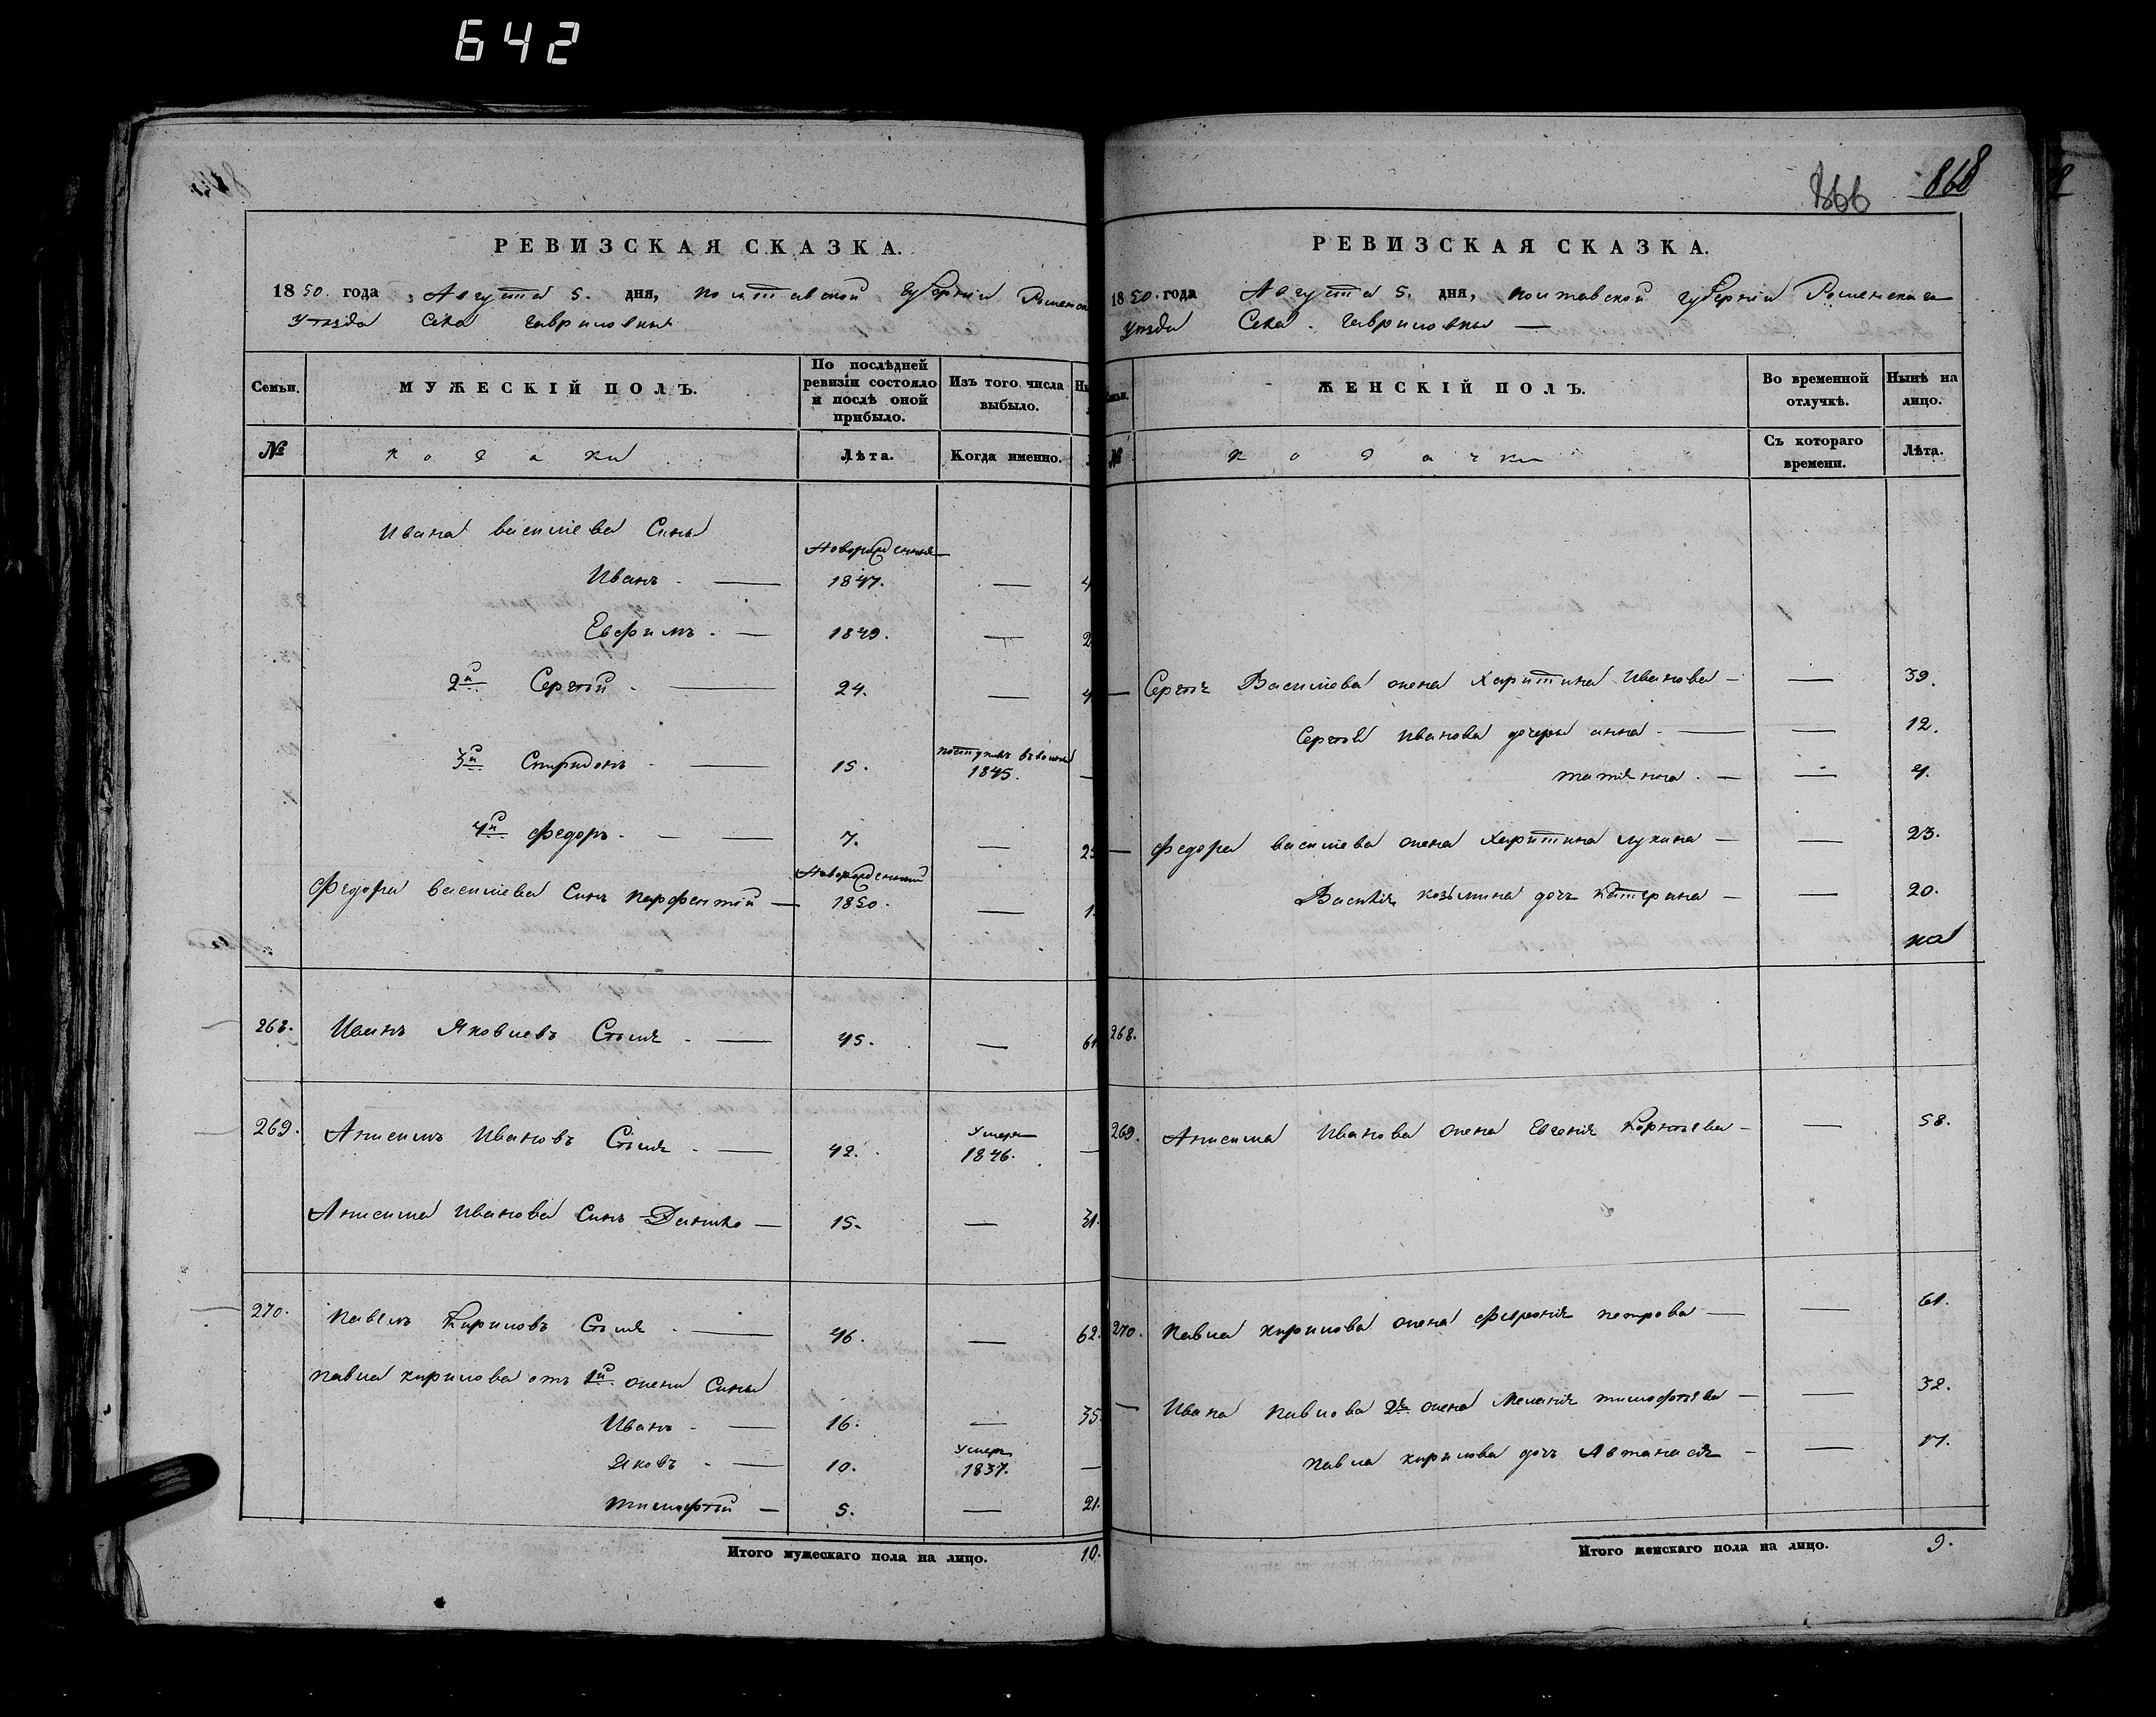 642
РЕВИЗСКАЯ СКАЗКА.
1850. года Августа 5. дня, полтавской губерніи Роменска
уѣзда Села гавриловки
Семьи. МУЖЕСКІЙ ПОЛЪ. По послѣдней ревизіи состояло и послѣ оной прибыло. Изъ того числа выбыло.
№ козаки Лѣта. Когда именно.
Ивана василіева Сины
Новорожденные
Иванъ. — 1847. — 4
Евфимъ. — 1849. — 2
2й Сергѣй. — 24. — 4
3й Спиридонъ — 15. поступилъ 1845. —
4й Федоръ. — 7. — 2
Новорожденный
Федора василіева Синъ парфентій — 1850. — 1.
268. Иванъ Яковлевъ — 45. — 61
269. Анисимъ Ивановъ — 42. Умеръ 1846. —
Анисима Иванова Синъ Данило — 15. — 31.
270. Павелъ Кириловъ — 46. — 62.
Павла кирилова отъ 1й жени Сины
Иванъ — 16. — 35
Яковъ — 10. Умеръ 1837. —
тимофѣй — 5. — 21.
Итого мужескаго пола на лицо. 10.
866 868
РЕВИЗСКАЯ СКАЗКА.
1850. года Августа 5. дня, полтавской губерніи Роменскаго
уѣзда Села гавриловки —
ЖЕНСКІЙ ПОЛЪ. Во временной отлучкѣ. Нынѣ на лицо.
№ козачки Съ котораго времени. Лѣта.
— Сергѣя Василіева жена Харитина Иванова — — 39.
Сергѣя Иванова дочери анна — — 12.
татіяна. — — 4.
— Федора василіева жена Харитина лукина — — 23.
Василія козьмина дочь Катерина — — 20.
268.
269. Анисима Иванова жена Евгенія Корнѣева — — 58.
270. Павла кирилова жена Февронія петрова — — 61.
— Ивана Павлова 2я жена Меланія тимофѣева — — 32.
Павла кирилова дочь Автанасія — — 17.
Итого женскаго пола на лицо. 9.